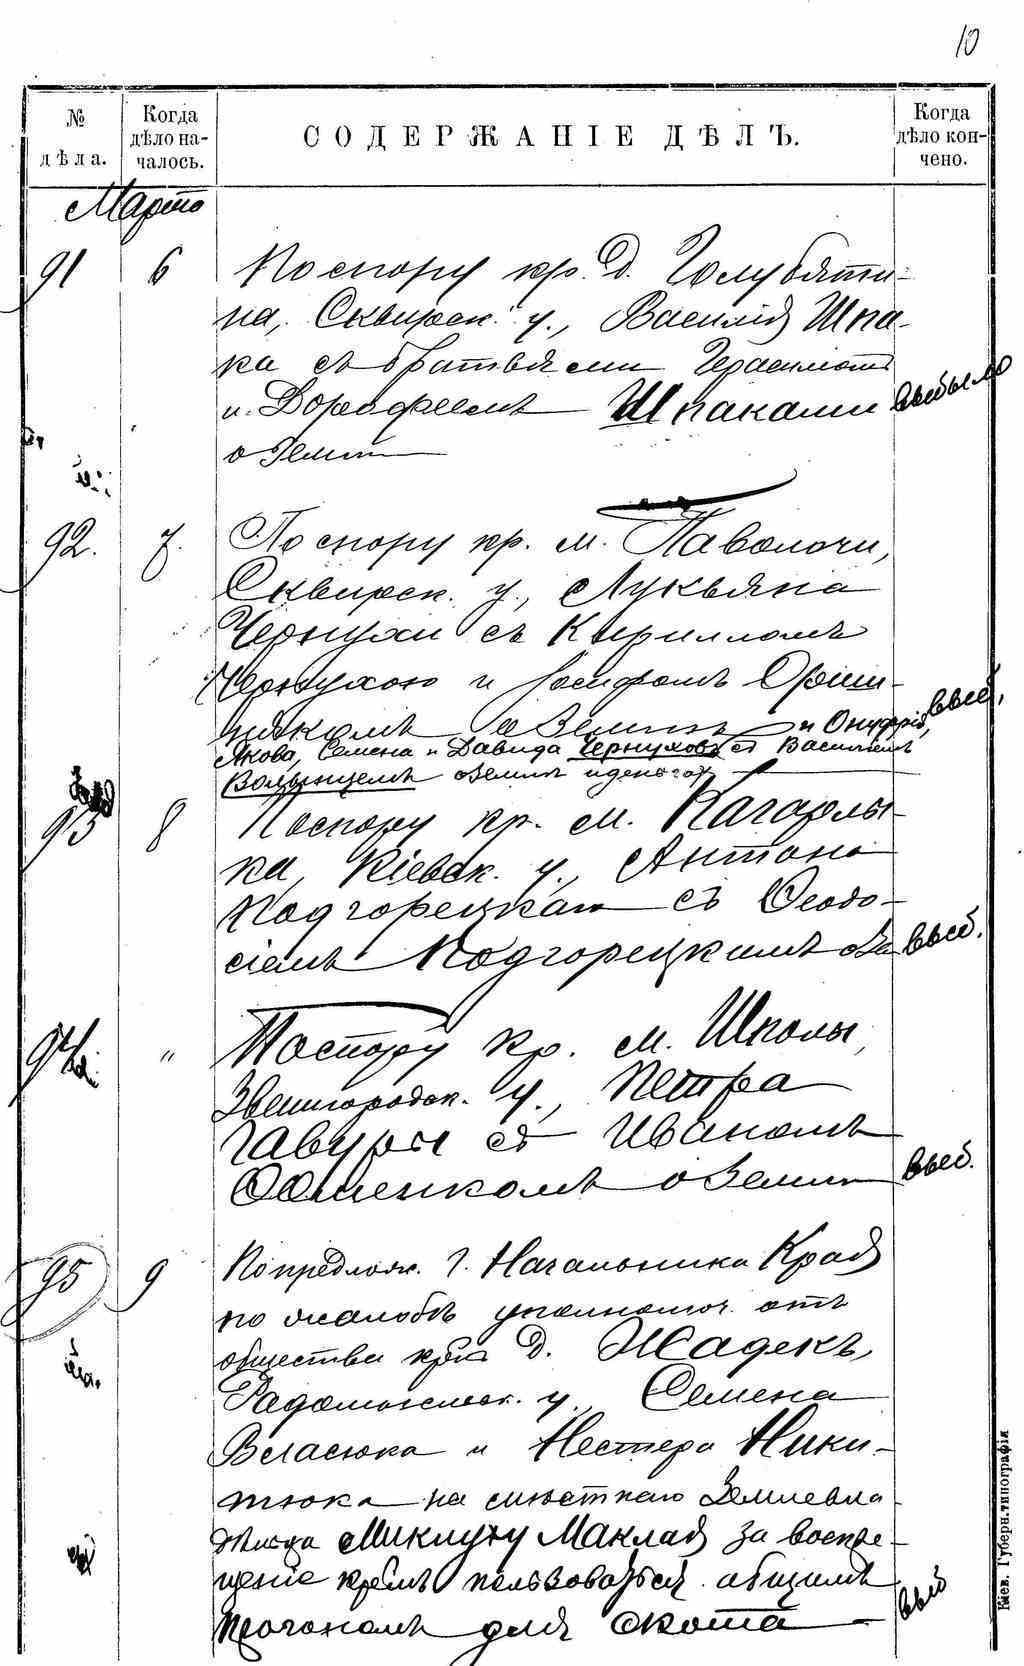 10
№ дѣла.
Когда дѣло началось.
СОДЕРЖАНІЕ ДѢЛЪ.
Когда дѣло кончено.
Мартъ
91 6 По спору кр. д. Голубяти-
на, Сквирск. у., Василія Шпа-
ка съ братьями Герасимомъ
и Дорофеемъ Шпаками выбыло
о земли
92. 7. По спору кр. м. Паволочи,
Сквирск. у., Лукьяна
Чернухи съ Кирилломъ
Чернухою и Іосифомъ
о земли и Онуфрія, выб.
Якова, Семена и Давида Чернуховъ съ Василіемъ
Волынцемъ о земли и деньгах
93 8 По спору кр. м. Кагарлы-
ка, Кіевск. у., Антона
Подгорецкаго съ Ѳеодо-
сіемъ Подгорецкимъ о выб.
94 " По спору кр. м. Шполы,
Звенигородск. у., Петра
Гавуры съ Иваномъ
о земли выб.
95 9 По предлож. Г. Начальника Края
по жалобѣ уполномоч. отъ
общества кр. д. Жадекъ,
Радомысльск. у., Семена
Власюка и Нестера Ники-
тюка на мѣстнаго землевла-
дѣльца Миклуху Маклая за воспре-
щеніе кр. пользоваться общимъ
прогономъ для скота выб
Кіев. Губерн. типографія